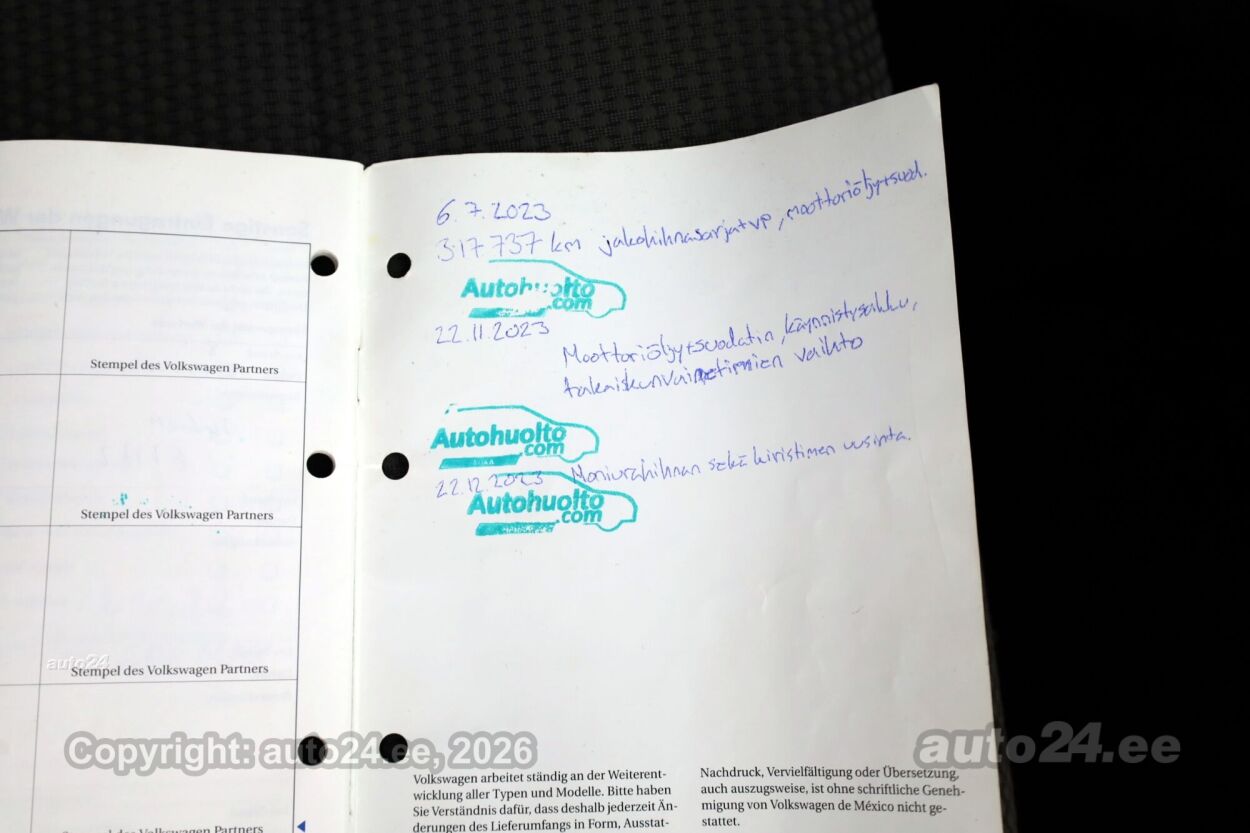 Stempel des Volkswagen Partners
Stempel des Volkswagen Partners
Stempel des Volkswagen Partners
Stempel des Volkswagen Partners
6.7.2023
317.737 km jakohihnasarja+vp, moottoriöljy+suod.
Autohuolto
.com
22.11.2023
Moottoriöljy+suodatin, käynnistysakku,
takaiskunvaimentimien vaihto
Autohuolto
.com
22.12.2023 Moniurahihnan sekä kiristimen uusinta.
Autohuolto
.com
Volkswagen arbeitet ständig an der Weiterent-
wicklung aller Typen und Modelle. Bitte haben
Sie Verständnis dafür, dass deshalb jederzeit Än-
derungen des Lieferumfangs in Form, Ausstat-
Nachdruck, Vervielfältigung oder Übersetzung,
auch auszugsweise, ist ohne schriftliche Geneh-
migung von Volkswagen de México nicht ge-
stattet.
auto24
Copyright: auto24.ee, 2026
auto24.ee